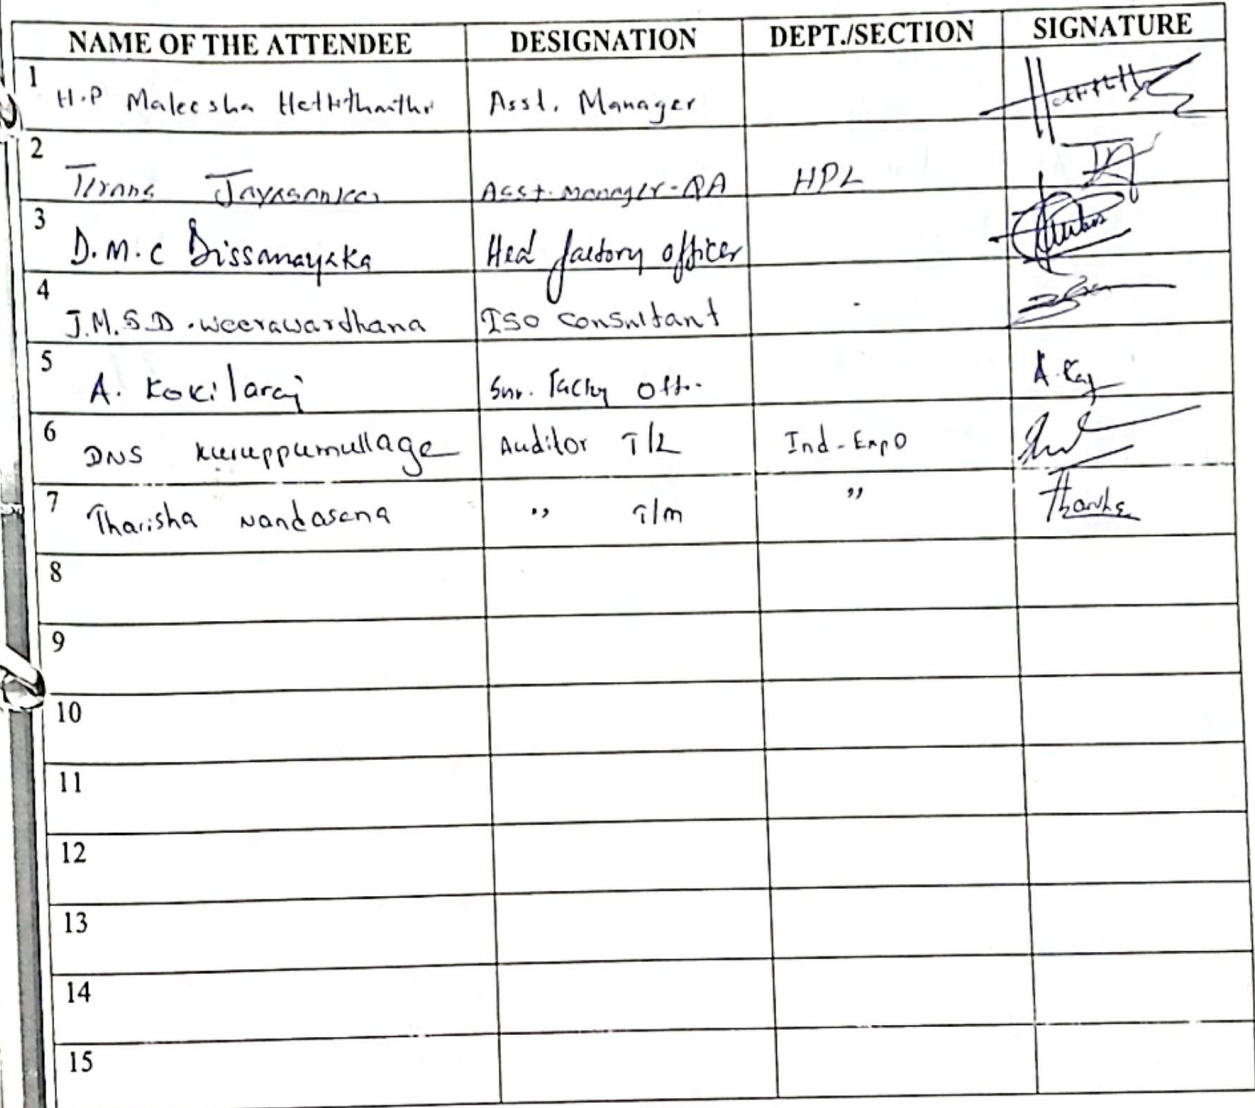 NAME OF THE ATTENDEE DESIGNATION DEPT./SECTION SIGNATURE
1 H.P Maleesha Asst. Manager
2 Asst. manager-QA HPL
3 D.M.C Dissanayaka Hed factory officer
4 J.M.S.D. weerawardhana ISO consultant -
5 A. Kokilaraj Off. A. Raj
6 DNS kuruppumullage Auditor T/L Ind-Expo
7 Tharisha Nandasena " T/m "
8
9
10
11
12
13
14
15